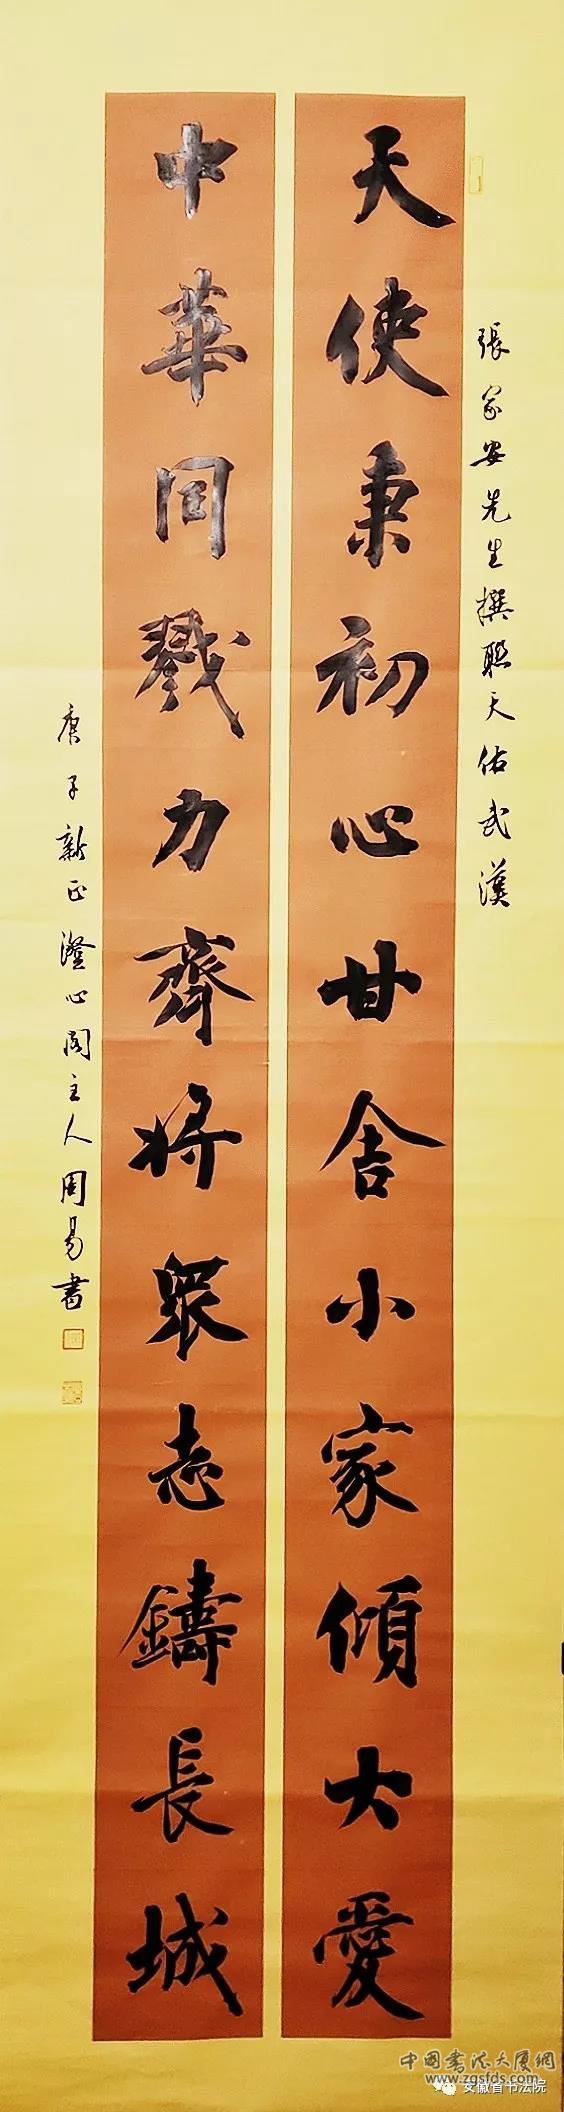 張家安先生撰聯天佑武漢
天使秉初心甘舍小家傾大愛
中華同戮力齊將眾志鑄長城
庚子新正澄心閣主人周易書
中国書法大厦網
www.zgsfds.com
安徽省书法院